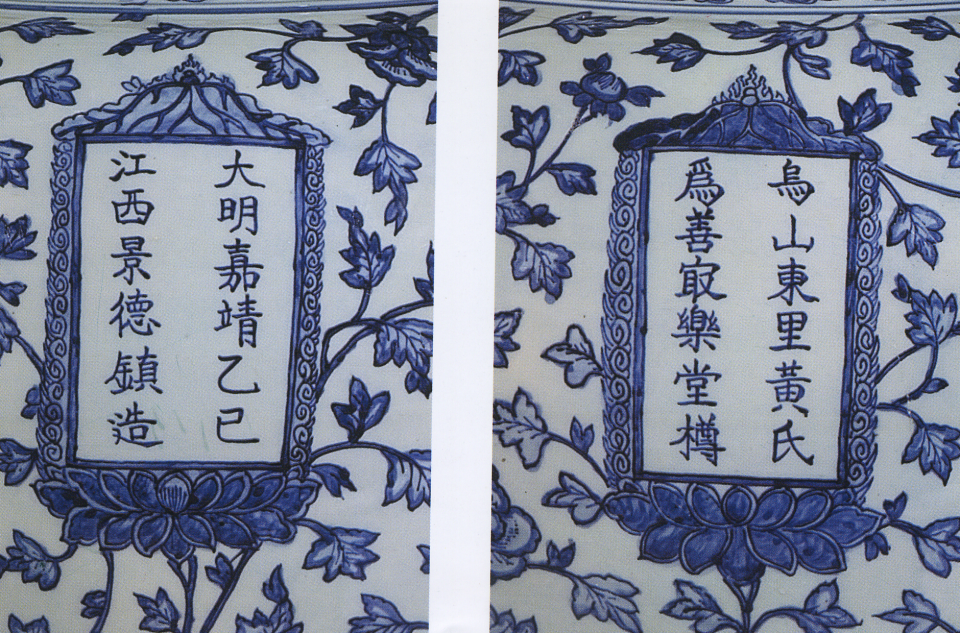 大明嘉靖乙巳
江西景德鎮造
烏山東里黃氏
爲善㝡樂堂樽